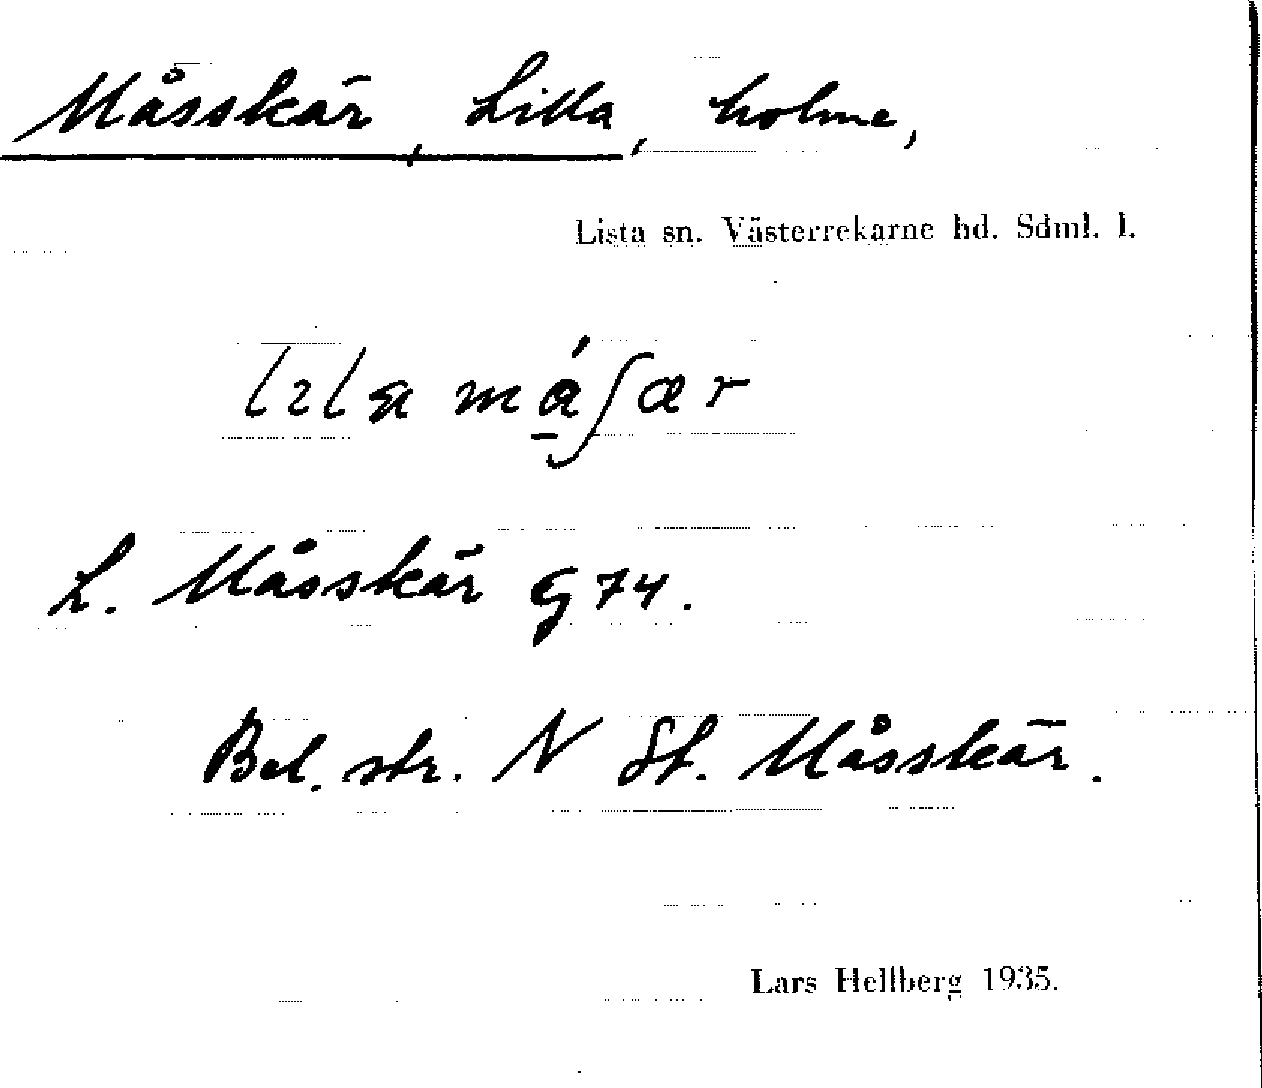 Måsskär, Lilla, holme,
Lista sn. Västerrekarne hd. Sdml. l.
L. Måsskär G 74.
Bel. str. N St. Måsskär.
Lars Hellberg 1935.